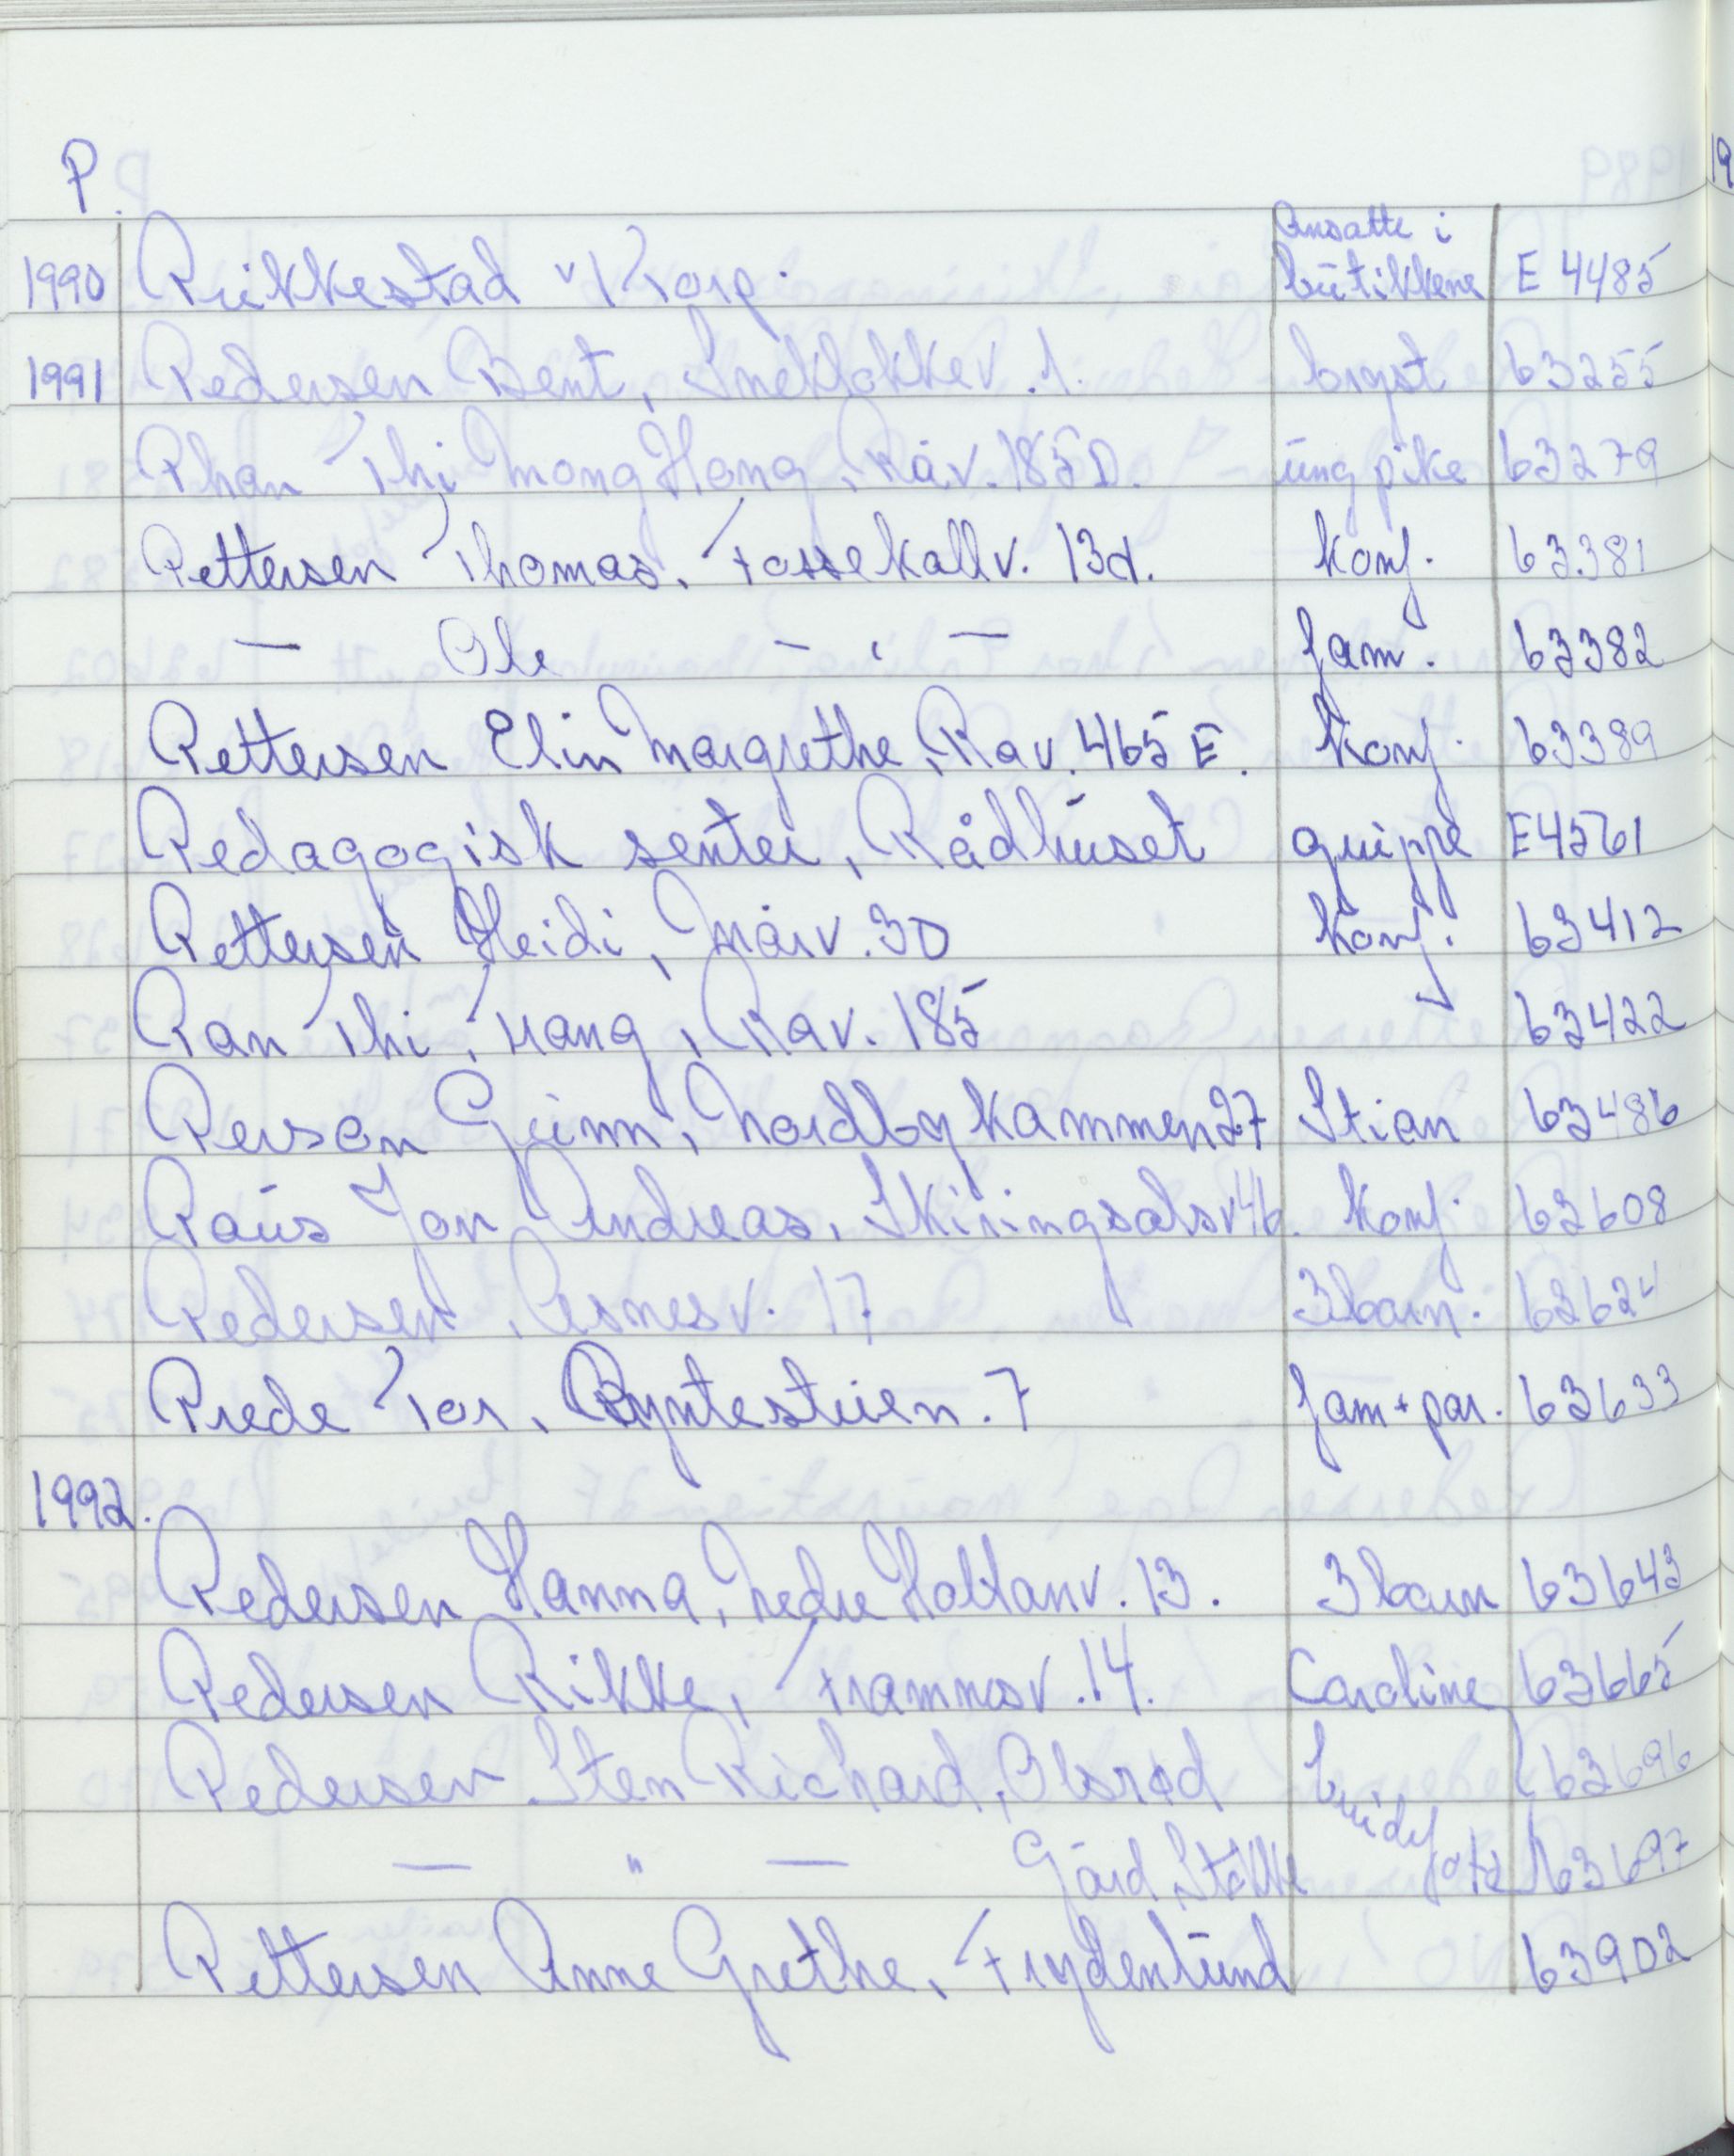 P.
1990 Prikkestad v/Korp. Ansatte i butikkene E 4485
1991 Pedersen Bent, Sneklokkev. 1. bryst 63255
Phan Thi Mong Hong, Råv. 185D. ung pike 63279
Pettersen Thomas, Fossekallv. 13d. konf. 63381
— Ole — , — fam. 63382
Pettersen Elin Margrethe, Rav. 465 E. konf. 63389
Pedagogisk senter, Rådhuset gruppe E4561
Pettersen Heidi, Mårv. 30 konf. 63412
Pan Thi Trang, Rav. 185 63422
Person Gunn, Nordbykammen 27 Stian 63486
Paus Jon Andreas, Skiringsalsv 46. konf. 63608
Pedersen, Aasnesv. 17 3 barn. 63624
Prede Tor, Byntestuien. 7 fam + par. 63633
1992.
Pedersen Hanna, Nedre Holtanv. 13. 3 barn 63643
Pedersen Rikke, Framnesv. 14. Caroline 63665
Pedersen Sten Richard, Olsrød brudef 63696
— " — Gård, Stokke oto 63697
Pettersen Anne Grethe, Frydenlund 63902